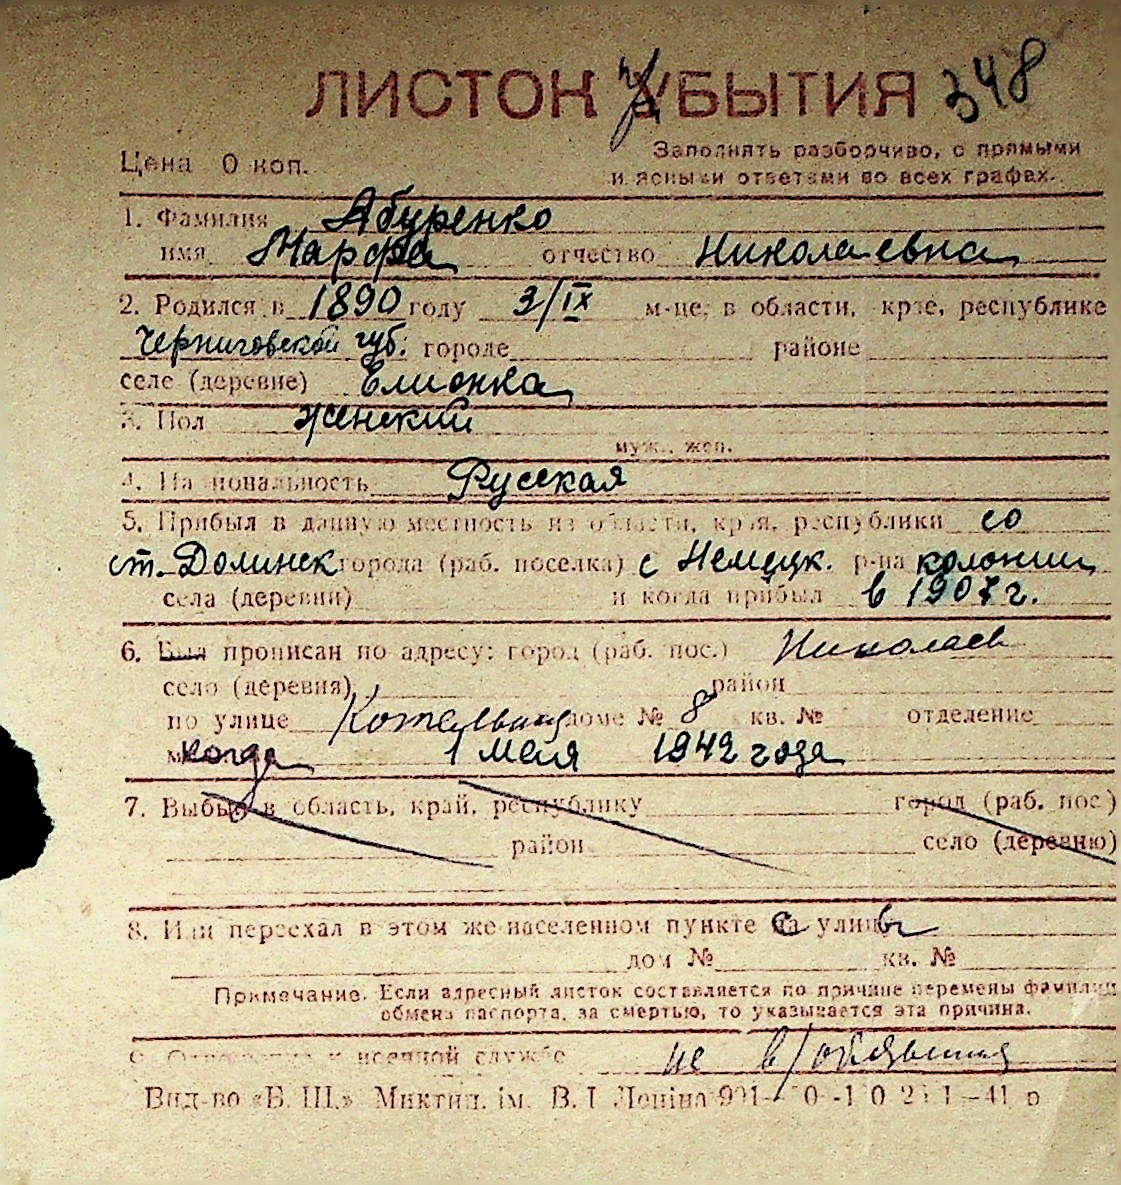 ЛИСТОК УБЫТИЯ 348
Цена 0 коп.
Заполнять разборчиво, с прямыми
и ясными ответами во всех графах.
1. Фамилия Абуренко
имя Марфа отчество Николаевна
2. Родился в 1890 году 3/IX м-це, в области, крае, республике
Черниговской губ. городе районе
селе (деревне) Елионка
3. Пол женский
муж., жен.
4. Национальность Русская
5. Прибыл в данную местность из области, края, республики со
ст. Долинск города (раб. поселка) с Немецк. р-на колонии
села (деревни) и когда прибыл в 1907 г.
6. Был прописан по адресу: город (раб. пос.) Николаев
село (деревня) район
по улице доме № 8 кв. № отделение
когда 1 мая 1942 года
7. Выбыл в область, край, республику город (раб. пос.)
район село (деревню)
8. Или переехал в этом же населенном пункте с улицы
дом № кв. №
Примечание. Если адресный листок составляется по причине перемены фамилии
обмена паспорта, за смертью, то указывается эта причина.
9. Отношение к военной службе не в/обязанная
Вид-во «Б. Ш.» Миктип. ім. В. І Леніна